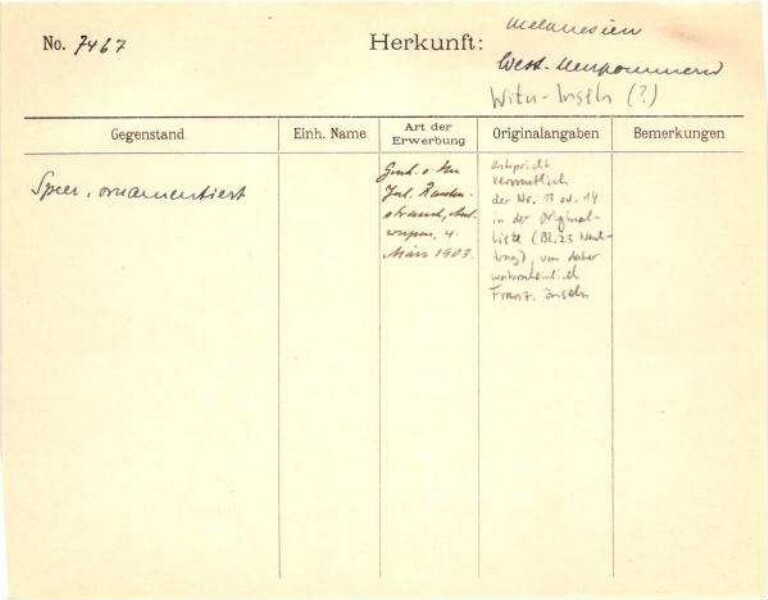 No. 7467
Herkunft:
Melanesien
West-Neupommern
Witu-Inseln (?)
Gegenstand
Einh. Name
Art der
Erwerbung
Originalangaben
Bemerkungen
Speer, ornamentiert
Gesch. v. Hrn
Jul.
März 1903.
entspricht
vermutlich
der Nr. 13 od. 14
in der Original-
liste (Bl. 23 Nach-
trag), von daher
wahrscheinlich
Franz. Inseln